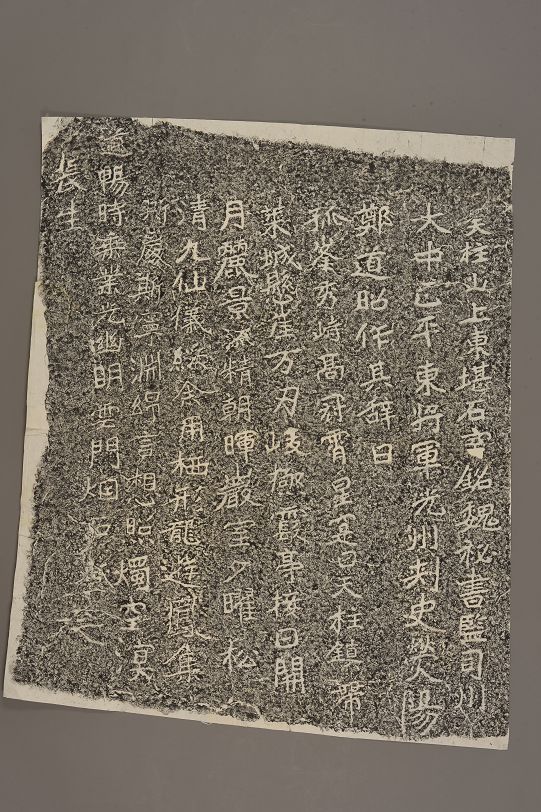 天柱山上東堪石室銘魏秘書監司州
大中正平東將軍光州刺史熒陽
鄭道昭作其辭曰
孤峯秀峙高冠霄星寔曰天柱鎮帶
萊城懸崖万刃峻極霞亭接日開
月麗景流精朝暉巖室夕曜松
清九仙儀綵余用栖形龍遊鳳集
斯處斯寧淵綿言想照燭空溟
道暢時乘業光幽明雲門烟石登之
長生